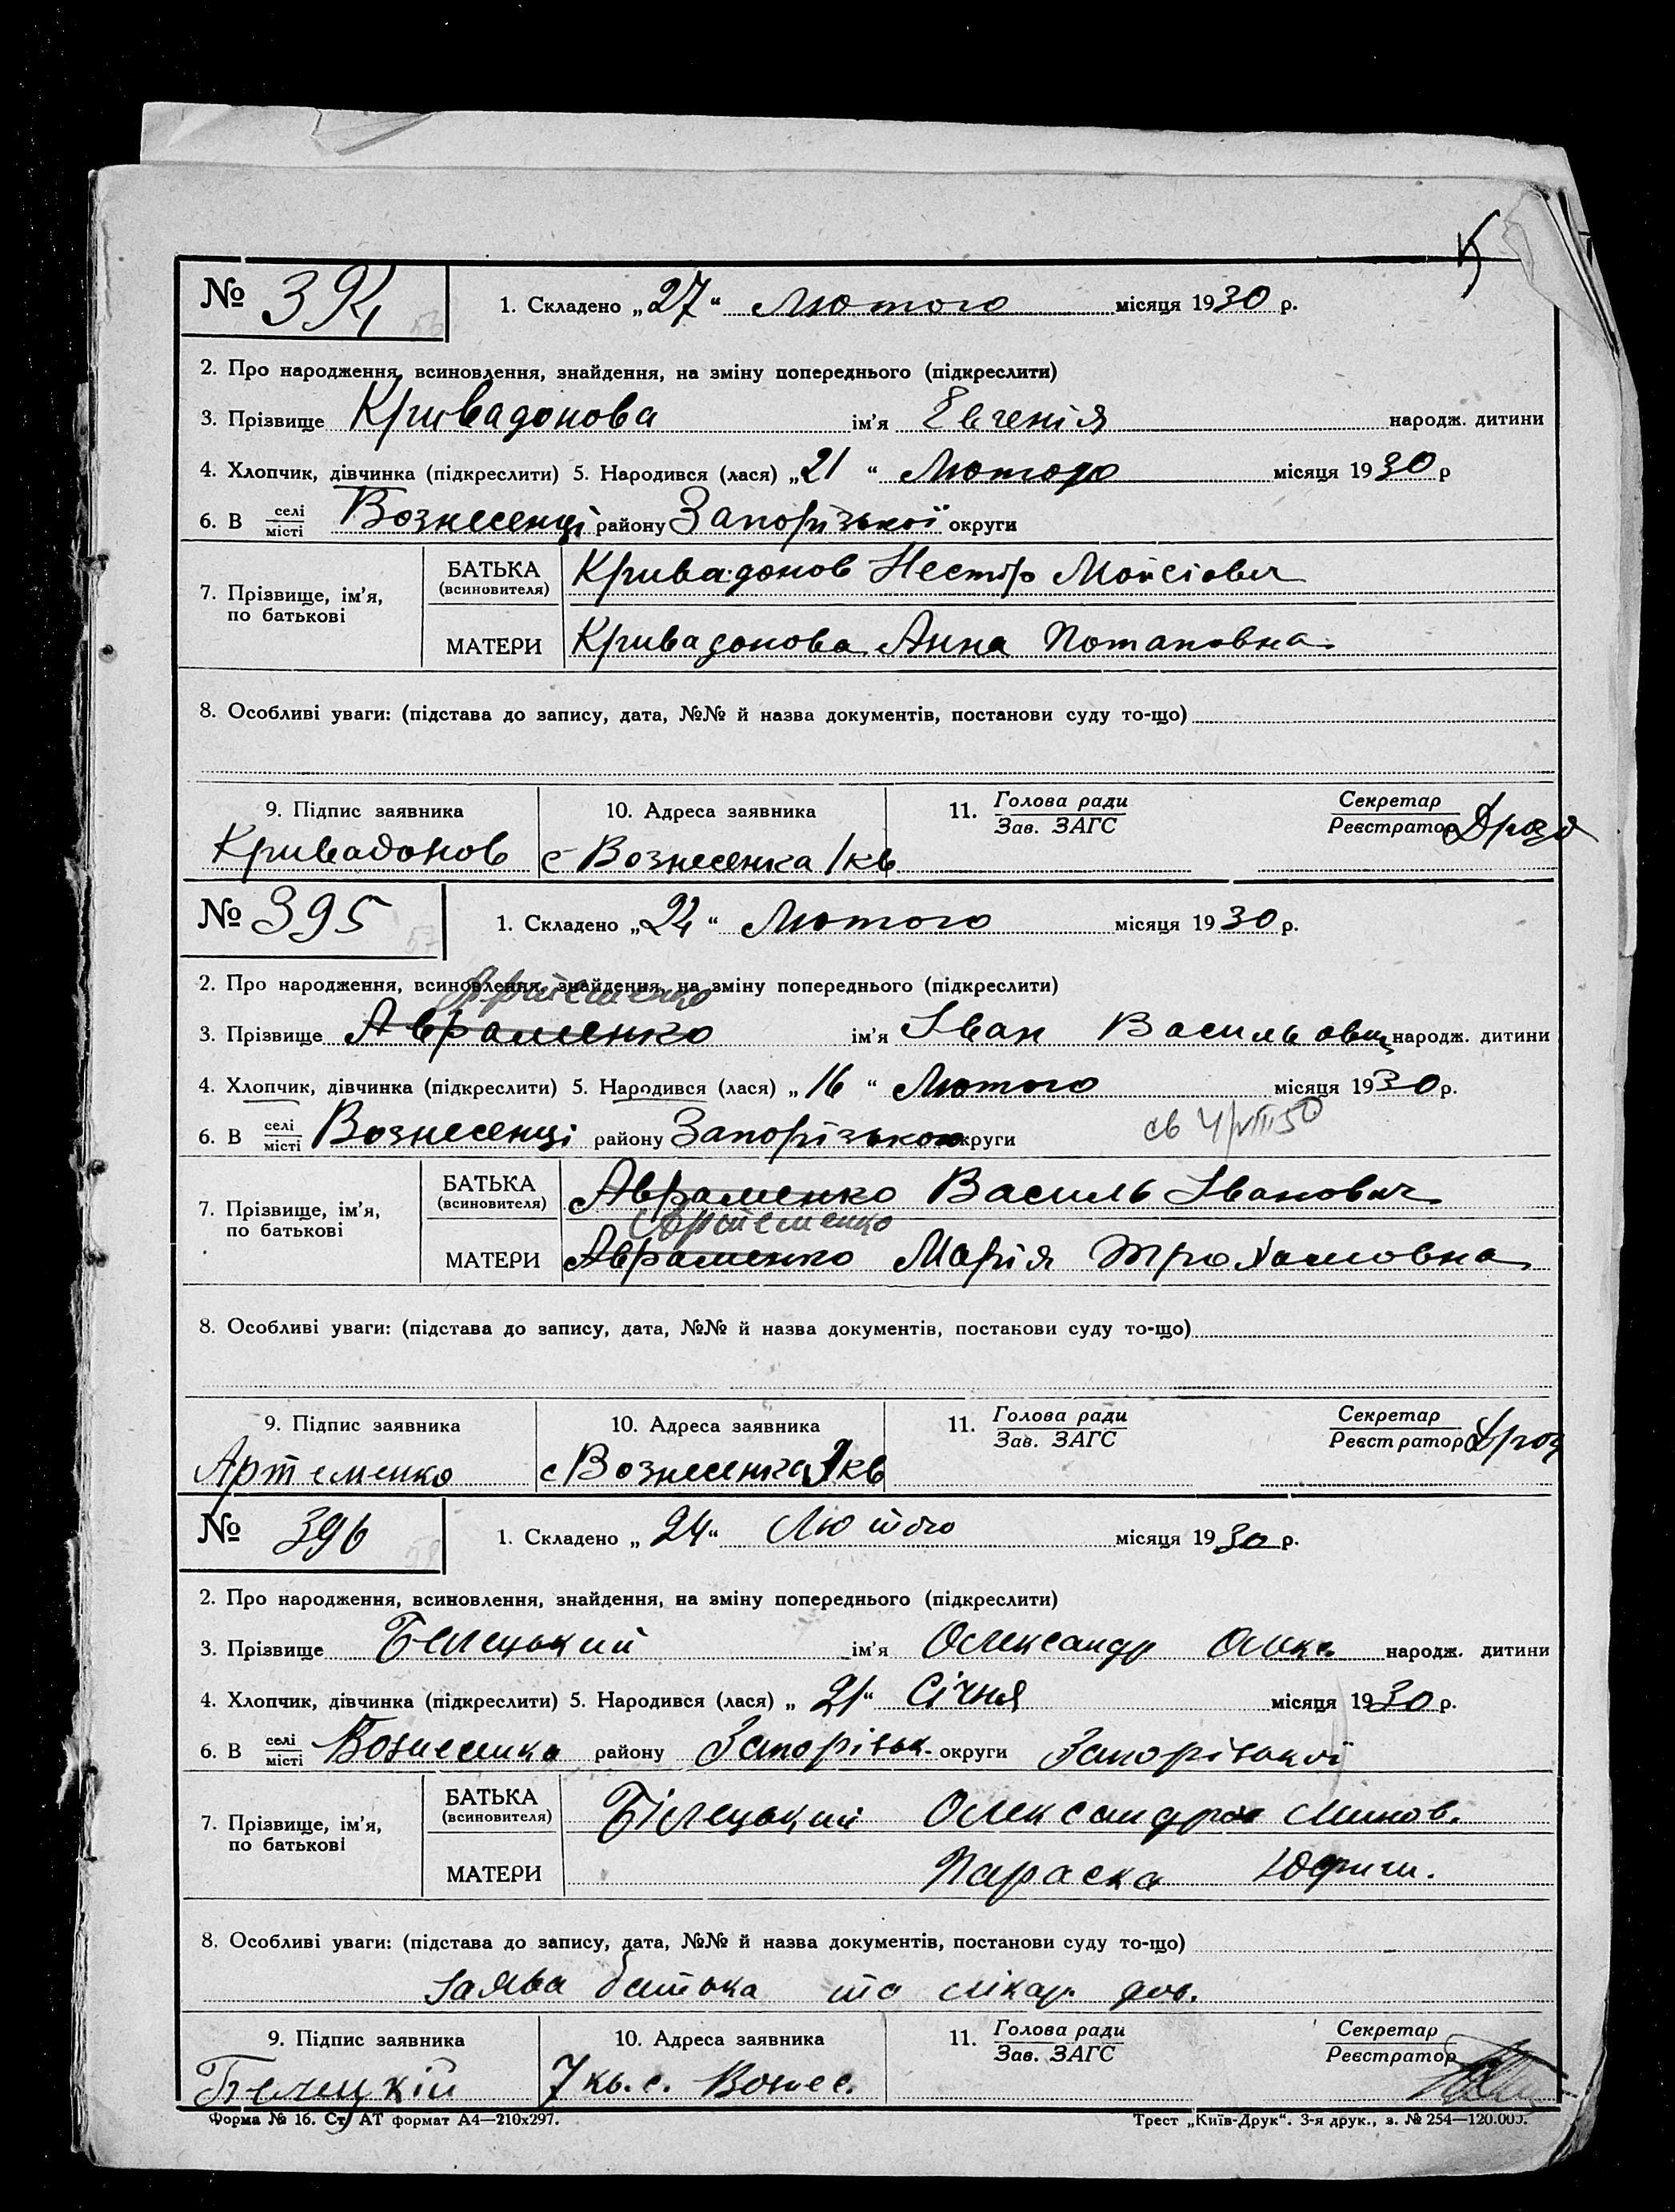 5
№ 394
56
1. Складено „27“ Лютого місяця 1930 р.
2. Про народження, всиновлення, знайдення, на зміну попереднього (підкреслити)
3. Прізвище Кривадонова ім'я Евгенія народж. дитини
4. Хлопчик, дівчинка (підкреслити) 5. Народився (лася) „21“ Лютого місяця 1930 р
6. В селі/місті Вознесенці району Запорізької округи
7. Прізвище, ім'я, по батькові
БАТЬКА (всиновителя) Кривадонов Нестір Мойсіович
МАТЕРИ Кривадонова Анна Потаповна
8. Особливі уваги: (підстава до запису, дата, №№ й назва документів, постанови суду то-що)
9. Підпис заявника 10. Адреса заявника 11. Голова ради/Зав. ЗАГС Секретар/Реєстратор Дрозд
Кривадонов с Вознесенка 1 кв
№ 395
57
1. Складено „24“ Лютого місяця 1930 р.
2. Про народження, всиновлення, знайдення, на зміну попереднього (підкреслити)
Артеменко
3. Прізвище Авраменко ім'я Іван Васильович народж. дитини
4. Хлопчик, дівчинка (підкреслити) 5. Народився (лася) „16“ Лютого місяця 1930 р.
6. В селі/місті Вознесенці району Запорізької округи
св 4/VIII 50
7. Прізвище, ім'я, по батькові
БАТЬКА (всиновителя) Авраменко Василь Іванович
Артеменко
МАТЕРИ Авраменко Марія Трохамовна
8. Особливі уваги: (підстава до запису, дата, №№ й назва документів, постанови суду то-що)
9. Підпис заявника 10. Адреса заявника 11. Голова ради/Зав. ЗАГС Секретар/Реєстратор Дрозд
Артеменко с Вознесенка кв
№ 396
58
1. Складено „24“ Лютого місяця 1930 р.
2. Про народження, всиновлення, знайдення, на зміну попереднього (підкреслити)
3. Прізвище Белецький ім'я Олександр Олекс. народж. дитини
4. Хлопчик, дівчинка (підкреслити) 5. Народився (лася) „21“ Січня місяця 1930 р.
6. В селі/місті Вознесенка району Запорізьк. округи Запорізької
7. Прізвище, ім'я, по батькові
БАТЬКА (всиновителя) Білецький Олександр Минов.
МАТЕРИ Параска Юфрим.
8. Особливі уваги: (підстава до запису, дата, №№ й назва документів, постанови суду то-що)
заява батька та лікар. дов.
9. Підпис заявника 10. Адреса заявника 11. Голова ради/Зав. ЗАГС Секретар/Реєстратор
Белецкій 7 кв. с. Вознес.
Форма № 16. Ст. АТ формат А4—210х297.
Трест „Київ-Друк“. 3-я друк., з. № 254—120.000.